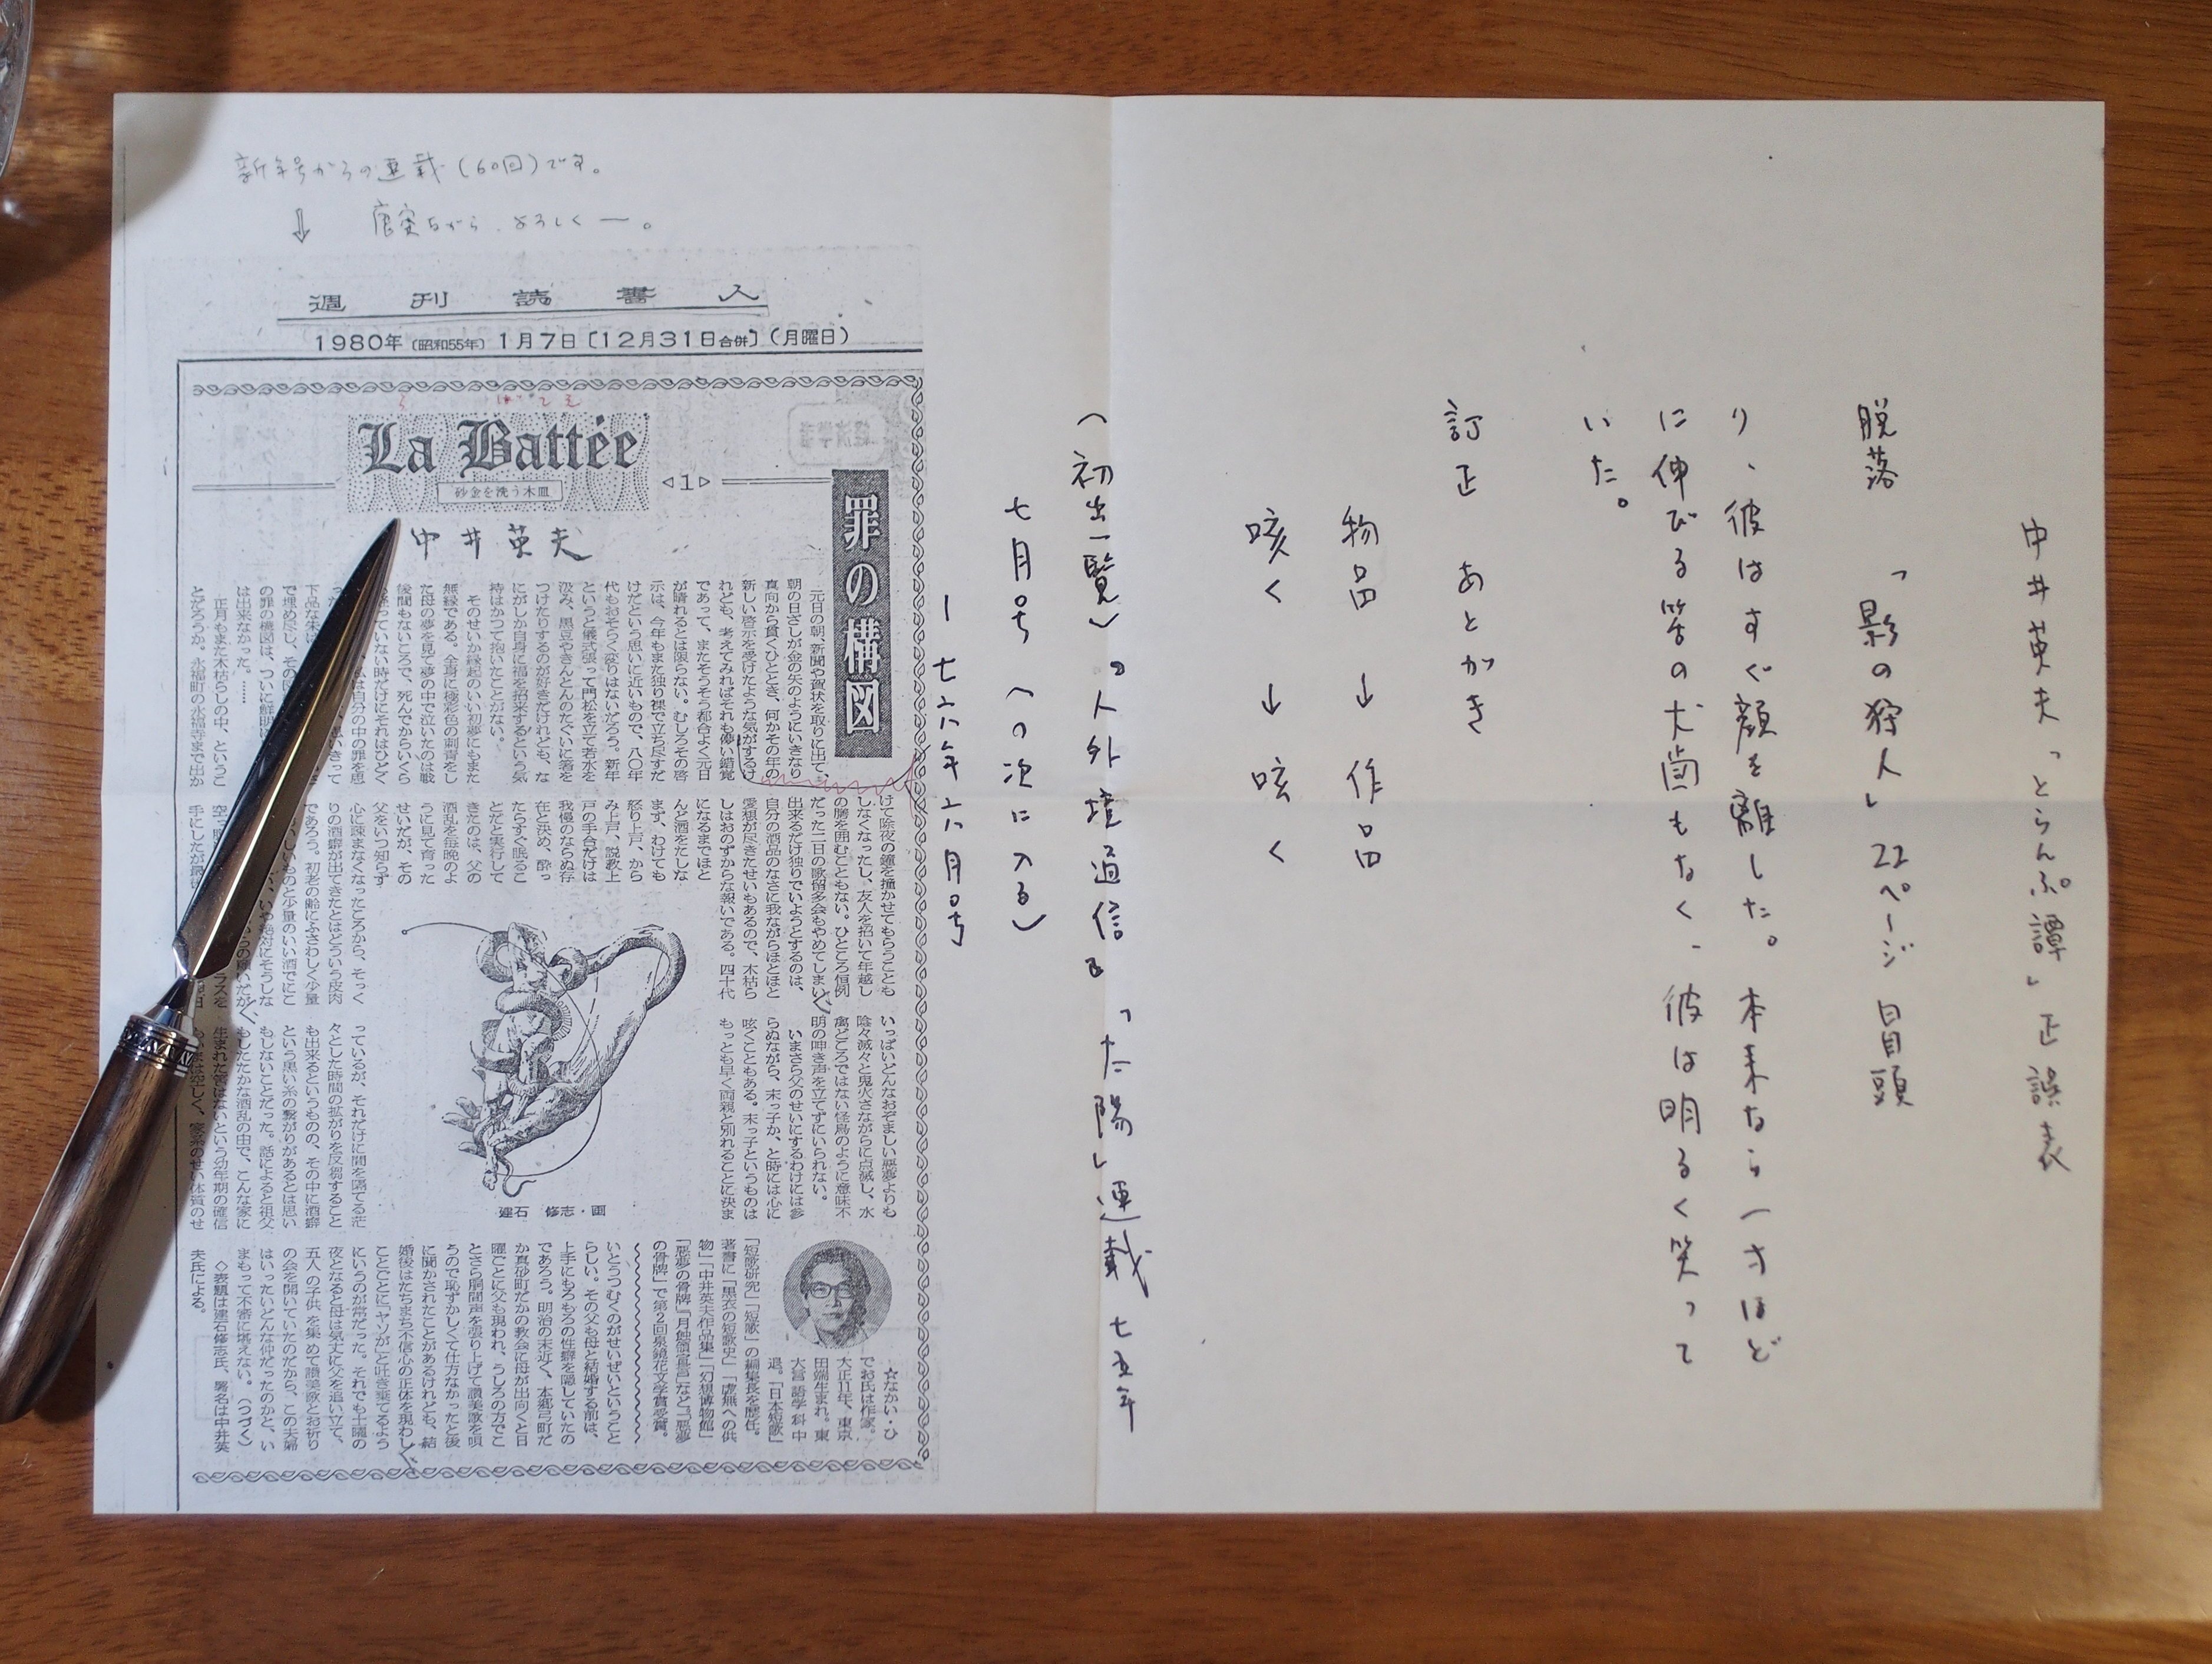 中井英夫「とらんぷ譚」正誤表
脱落 「影の狩人」22ページ 冒頭
り、彼はすぐ顔を離した。本来なら一寸ほど
に伸びる筈の犬歯もなく、彼は明るく笑って
いた。
訂正 あとがき
物品 → 作品
咳く → 呟く
(初出一覧)『人外境通信』「太陽」連載 七五年
七月号 (の次に入る)
ー七六年六月号
新年号からの連載(60回)です。
⇓ 唐突ながら、よろしく―。
週刊読書人
1980年〔昭和55年〕1月7日〔12月31日合併〕(月曜日)
La Battée
砂金を洗う木皿
◁1▷
中井英夫
罪の構図
元日の朝、新聞や賀状を取りに出て、
朝の日ざしが金の矢のようにいきなり
真向から貫くひととき、何かその年の
新しい啓示を受けたような気がするけ
れども、考えてみればそれも儚い錯覚
であって、またそうそう都合よく元日
が晴れるとは限らない。むしろその啓
示は、今年もまた独り裸で立ち尽すだ
けだという思いに近いもので、八〇年
代もおそらく変りはないだろう。新年
というと儀式張って門松を立て若水を
汲み、黒豆やきんとんのたぐいに箸を
つけたりするのが好きだけれども、な
にがしか自身に福を招来するという気
持はかつて抱いたことがない。
そのせいか縁起のいい初夢にもまた
無縁である。全身に極彩色の刺青をし
た母の夢を見て夢の中で泣いたのは戦
後間もないころで、死んでからいくら
っていない時だけにそれはひどく
私は自分の中の罪を思
思いきって
下品な朱
で埋め尽し、その
の罪の構図は、ついに鮮明
は出来なかった。……
正月もまた木枯らしの中、というこ
とだろうか。永福町の永福寺まで出か
けて除夜の鐘を撞かせてもらうことも
しなくなったし、友人を招いて年越し
の膳を囲むこともない。ひところ恒例
だった二日の歌留多会もやめてしまい
出来るだけ独りでいようとするのは、
自分の酒品のなさに我ながらほとほと
愛想が尽きたせいもあるので、木枯ら
しはおのずからな報いである。四十代
になるまでほと
んど酒をたしな
まず、わけても
怒り上戸、から
み上戸、説教上
戸の手合だけは
我慢のならぬ存
在と決め、酔っ
たらすぐ眠るこ
とだと実行して
きたのは、父の
酒乱を毎晩のよ
うに見て育った
せいだが、その
父をいつ知らず
心に疎まなくなったころから、そっく
りの酒癖が出てきたとはどういう皮肉
であろう。初老の齢にふさわしく少量
しいものと少量のいい酒でにこ
いや絶対にそうしな
らの願いだが、
ラスを
空
手にしたが最
いっぱいどんなおぞましい悪夢よりも
陰々滅々と鬼火さながらに点滅し、水
禽どころではない怪鳥のように意味不
明の呻き声を立てずにいられない。
いまさら父のせいにするわけには参
らぬながら、末っ子か、と時には心に
呟くこともある。末っ子というものは
もっとも早く両親と別れることに決ま
っているが、それだけに間を隔てる茫
々とした時間の拡がりを反芻すること
も出来るというものの、その中に酒癖
という黒い糸の繫がりがあるとは思い
もしないことだった。話によると祖父
もしたたかな酒乱の由で、こんな家に
生まれた筈はないという幼年期の確信
は空しく、家系のせい体質のせ
建石 修志・画
いとうつむくのがせいぜいということ
らしい。その父も母と結婚する前は、
上手にもろもろの性癖を隠していたの
であろう。明治の末近く、本郷弓町だ
か真砂町だかの教会に母が出向くと日
曜ごとに父も現われ、うしろの方でこ
とさら胴間声を張り上げて讃美歌を唄
うので恥ずかしくて仕方なかったと後
に聞かされたことがあるけれども、結
婚後はたちまち不信心の正体を現わし
ことごとに「ヤソが」と吐き棄てるよう
にいうのが常だった。それでも土曜の
夜となると母は気丈に父を追い立て、
五人の子供を集めて讃美歌とお祈り
の会を開いていたのだから、この夫婦
はいったいどんな仲だったのかと、い
まもって不審に堪えない。(つづく)
◇表題は建石修志氏、署名は中井英
夫氏による。
☆なかい・ひ
でお氏は作家。
大正11年、東京
田端生まれ。東
大言語学科中
退。「日本短歌」
「短歌研究」「短歌」の編集長を歴任。
著書に「黒衣の短歌史」「虚無への供
物」「中井英夫作品集」「幻想博物館」
「悪夢の骨牌」「月蝕領宣言」など。「悪夢
の骨牌」で第2回泉鏡花文学賞受賞。